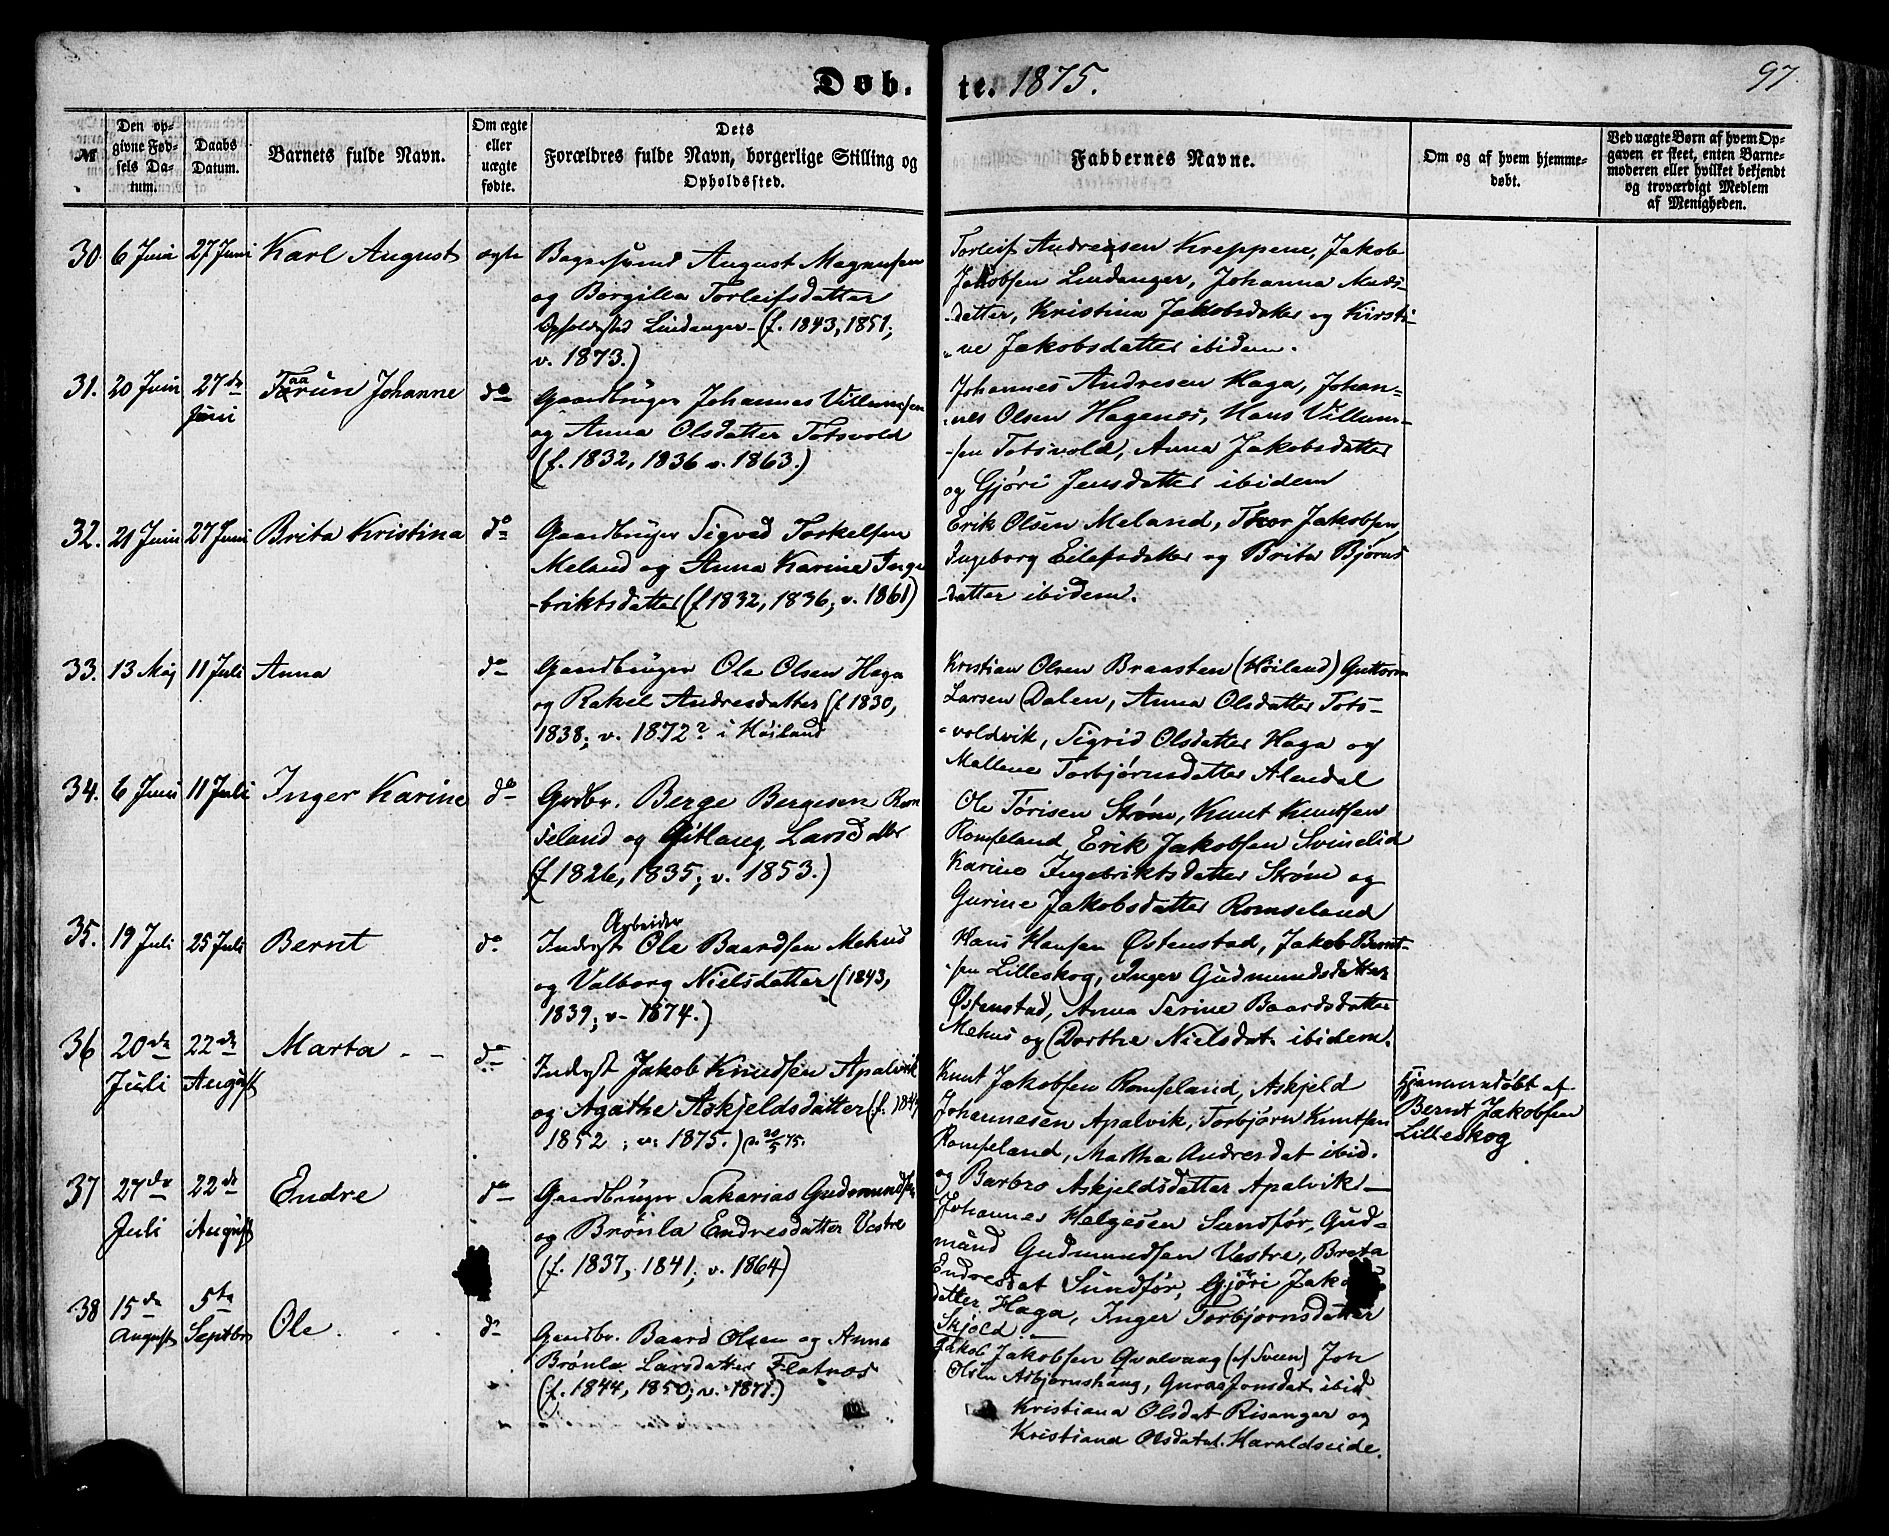 Døb.
te. 1875.
97.
№
Den op-
givne Fød-
sels Da-
tum.
Daabs
Datum.
Barnets fulde Navn.
Om ægte
eller
uægte
fødte.
Dets
Forældres fulde Navn, borgerlige Stilling og
Opholdssted.
Faddernes Navne.
Om og af hvem hjemme-
døbt.
Ved uægte Børn af hvem Op-
gaven er skeet, enten Barne-
moderen eller hvilket bekjendt
og troværdigt Medlem
af Menigheden.
30. 6 Juni 27 Juni Karl August ægte
Bagersvend August Magnusen
og Borgilla Torleifsdatter
Opholdssted Lindanger - (f. 1843, 1851;
v. 1873.)
Torleif Andreasen Kreppene, Jakob
Jakobsen Lindanger, Johanna Mads-
datter, Kristina Jakobsdatter og Kirsti-
ne Jakobsdatter ibidem.
31. 20 Juni 27de Juni Taarun Johanne do
Gaardbruger Johannes Villumsen
og Anna Olsdatter Totsvold
(f. 1832, 1836 v. 1863.)
Johannes Andresen Haga, Johan-
nes Olsen Hagenes, Hans Villum-
sen Totsvold, Anna Jakobsdatter
og Gjøri Jensdatter ibidem
32. 21 Juni 27 Juni Brita Kristina do
Gaardbruger Sigvad Torkelsen
Meland og Anna Karine Inge-
briktsdatter (f. 1832, 1836; v. 1861)
Erik Olsen Meland, Thor Jakobsen
Ingeborg Eilefsdatter og Brita Bjørns-
datter ibidem.
33. 13 Maj 11 Juli Anna do
Gaardbruger Ole Olsen Haga
og Rakel Andresdatter (f. 1830,
1838; v. 1872? i Høiland
Kristian Olsen Braasten (Høiland) Guttorm
Larsen Dalen, Anna Olsdatter Tots-
voldvik, Sigrid Olsdatter Haga og
Mallene Torbjørnsdatter Alendal
34. 6 Juni 11 Juli Inger Karine do
Grdbr. Berge Bergesen Rom-
seland og Gitlaug Larsdatter
(f. 1826, 1835; v. 1853.)
Ole Tørisen Strøm, Knut Knutsen
Romseland, Erik Jakobsen Svinelid
Karine Ingebriktsdatter Strøm og
Gurine Jakobsdatter Romseland
35. 19 Juli 25 Juli Bernt do
Arbeider
Inderst Ole Baardsen Mehus
og Valborg Nielsdatter (1843,
1839; v. 1874.)
Hans Hansen Østenstad, Jakob Bernt-
sen Lilleskog, Inger Gudmundsdatter
Østenstad, Anna Serine Baardsdatter
Mehus og Dorthe Nielsdat. ibidem.
36 20de Juli 22de August Marta do
Inderst Jakob Knudsen Apalvik
og Agathe Askjeldsdatter (f.
1852; v. 1875.)
Knut Jakobsen Romseland, Askjeld
Johannesen Apalvik, Torbjørn Knutsen
Romseland, Martha Andresdat ibid.
og Barbro Askjeldsdatter Apalvik -
Hjemmedøbt af
Bernt Jakobsen
Lilleskog
37 27de Juli 22de August Endre do
Gaardbruger Sakarias Gudmundsen
og Brønla Endresdatter Vestre
(f. 1837, 1841; v. 1864)
Johannes Helgesen Sundfør, Gud-
mund Gudmundsen Vestre, Breta
Endresdat Sundfør, Gjøri Jakobs-
datter Haga, Inger Torbjørnsdatter
Skjold. -
38 15de August 5te Septbr Ole do
Gaardbr. Baard Olsen og Anna
Brønla Larsdatter Flatnes
(f. 1844, 1850; v. 1871.)
Jakob Jakobsen Qvalvaag (af Sveen) Joh
Olsen Asbjørnshaug, Guroe Jonsdat ibid
Kristiana Olsdat Risanger og
Kristiana Olsdatt. Haraldseide.